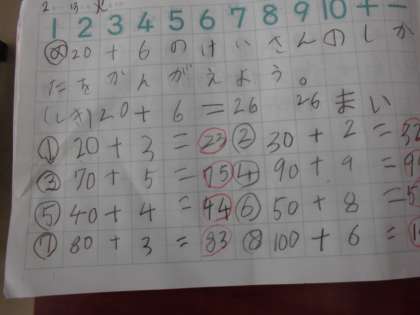 1 2 3 4 5 6 7 8 9 10 + -
め 20 + 6 のけいさんのしか
たをかんがえよう。
(しき) 20 + 6 = 26 26まい
① 20 + 3 = 23 ② 30 + 2 = 32
③ 70 + 5 = 75 ④ 90 + 9 = 9
⑤ 40 + 4 = 44 ⑥ 50 + 8 = 5
⑦ 80 + 3 = 83 ⑧ 100 + 6 = 1